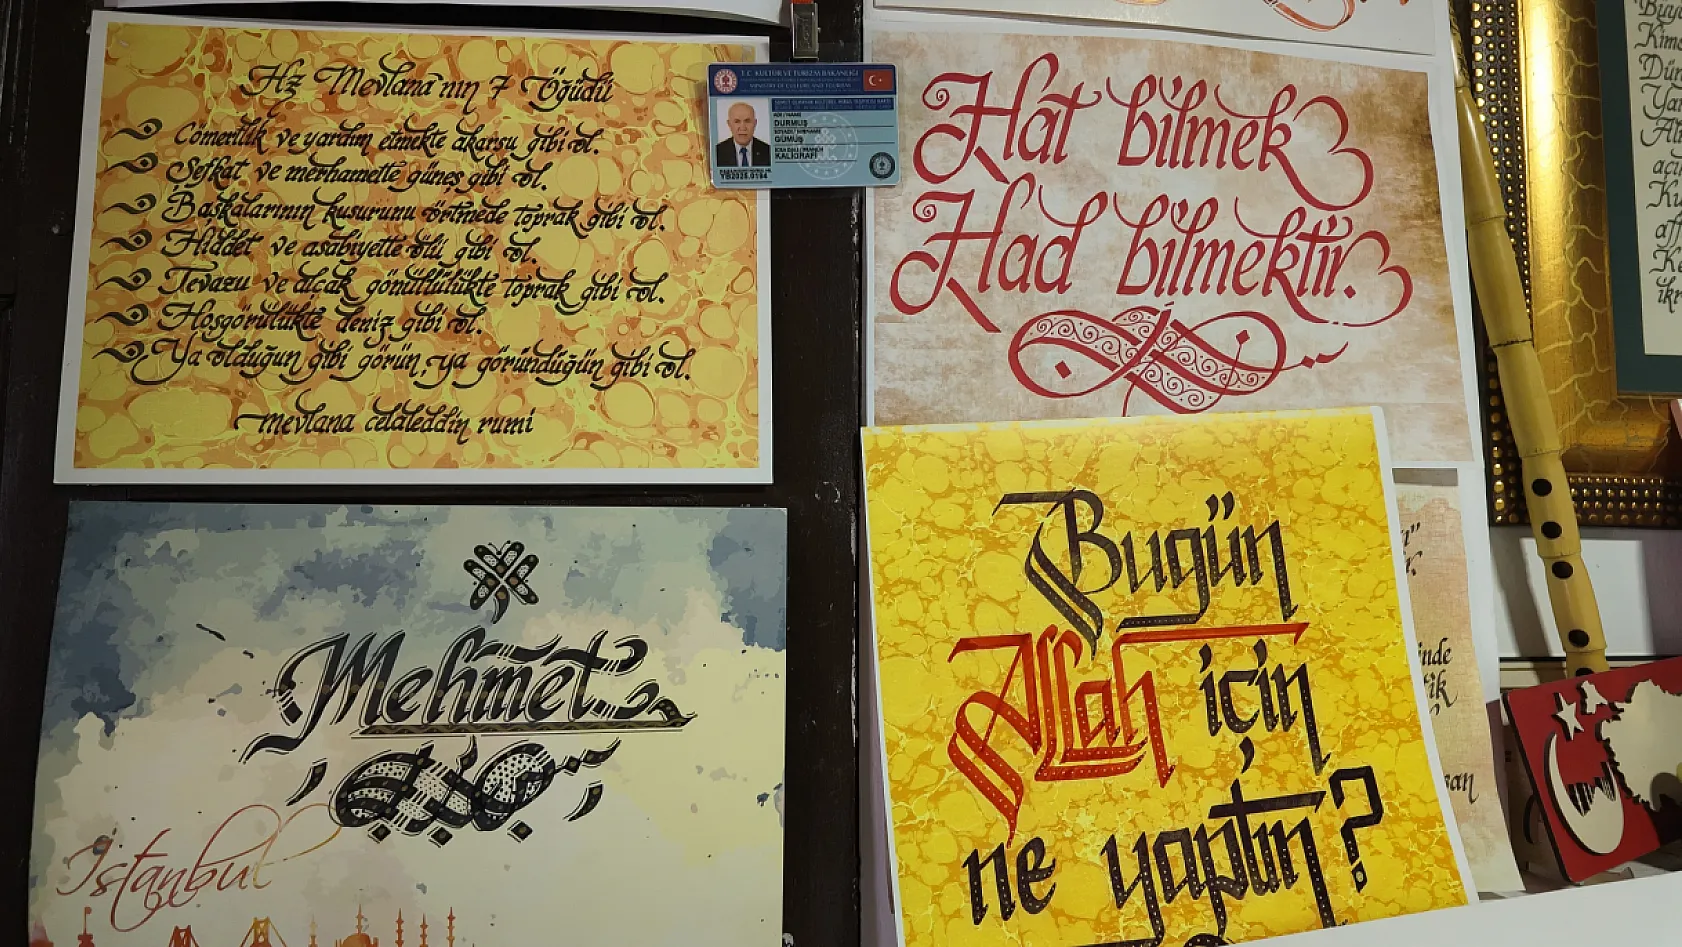 Hz Mevlana'nın 7 Öğüdü
Cömertlik ve yardım etmekte akarsu gibi ol.
Şefkat ve merhamette güneş gibi ol.
Başkalarının kusurunu örtmede toprak gibi ol.
Hiddet ve asabiyette ölü gibi ol.
Tevazu ve alçak gönüllülükte toprak gibi ol.
Hoşgörülükte deniz gibi ol.
Ya olduğun gibi görün, ya göründüğün gibi ol.
mevlana celaleddin rumi
T.C. KÜLTÜR VE TURİZM BAKANLIĞI
MINISTRY OF CULTURE AND TOURISM
ADI / NAME
DURMUŞ
SOYADI / SURNAME
GÜMÜŞ
KALİGRAFİ
YB2025.0194
Hat bilmek
Had bilmektir.
Mehmet
İstanbul
Bugün
Allah için
ne yaptın?